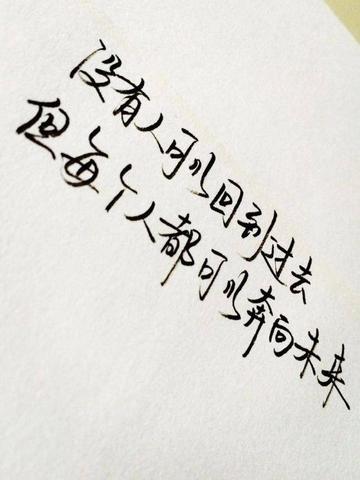 没有人可以回到过去
但每个人都可以奔向未来